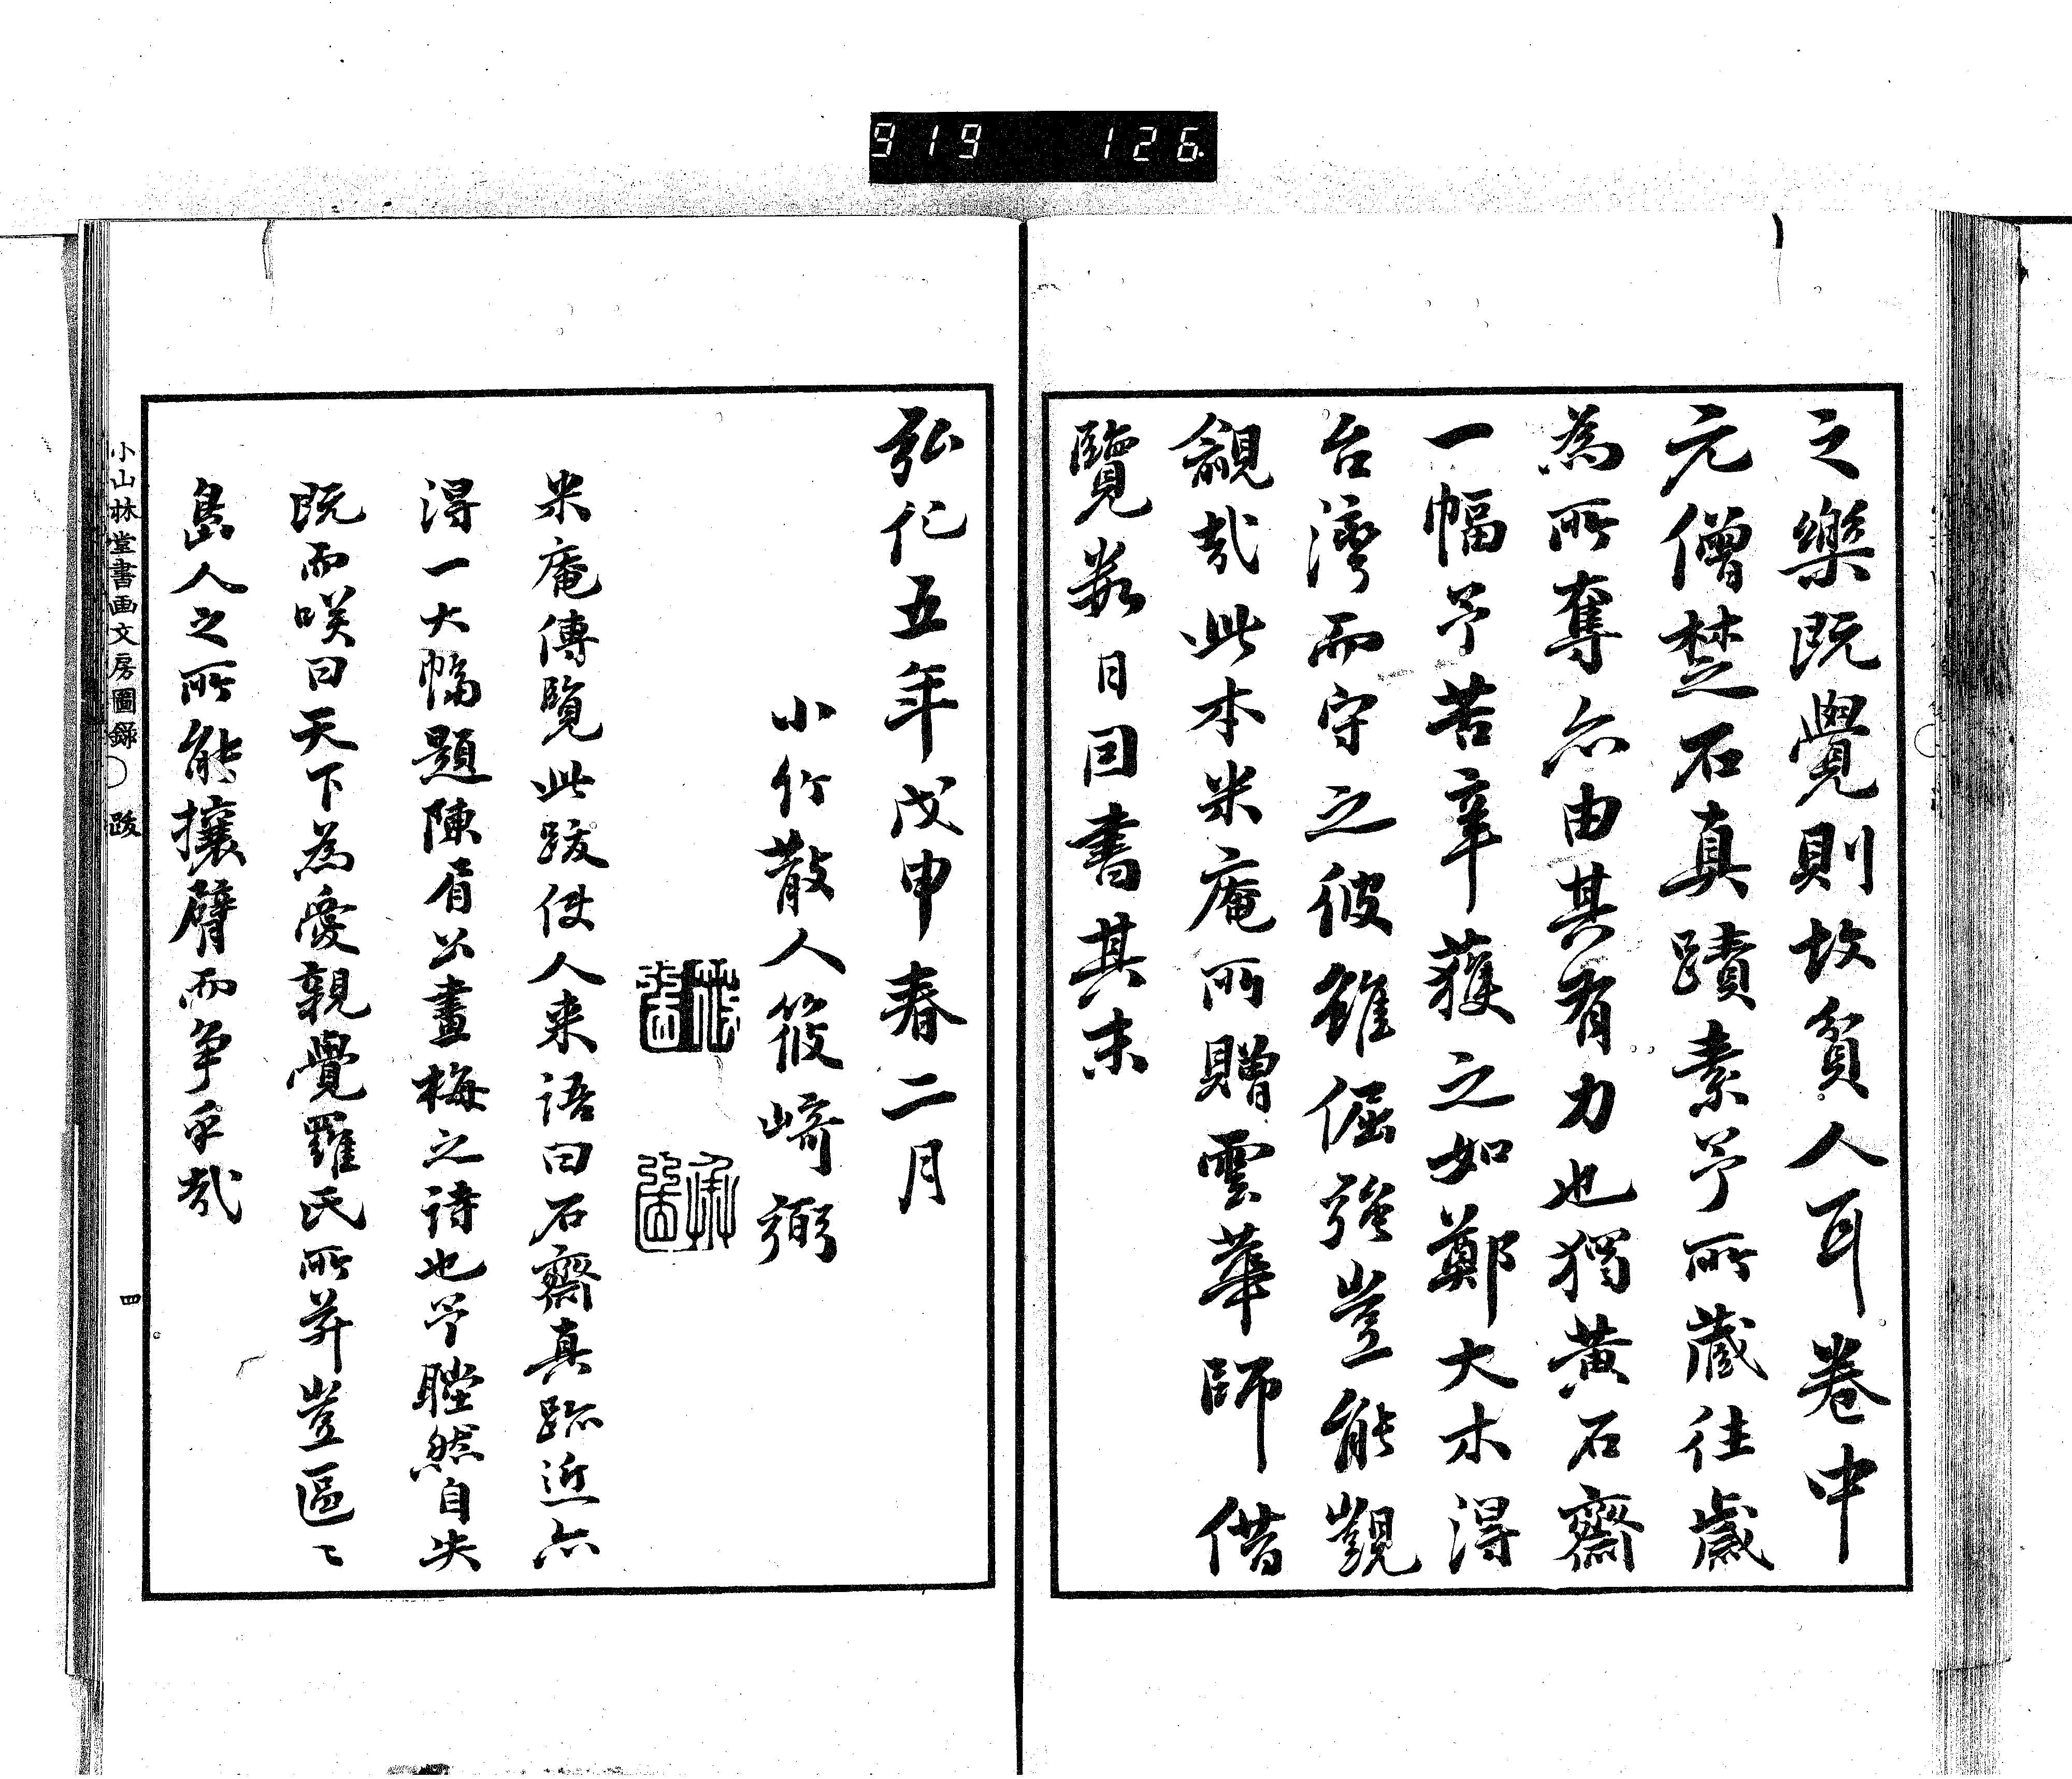 919 126
之樂既覺則故貧人耳卷中
元僧楚石真蹟素予所藏往歲
為所奪亦由其有力也獨黃石齋
一幅予苦辛獲之如鄭大木得
台灣而守之彼雖倔強豈能覬
覦哉此本米庵所贈雲華師借
覽數日因書其末
弘化五年戊申春二月
小竹散人筱崎弼
米庵傳覽此跋使人来語曰石齋真跡近亦
得一大幅題陳眉公畫梅之詩也予瞠然自失
既而咲曰天下為愛親覺羅氏所并豈區〻
島人之所能攘臂而争乎哉
小山林堂書画文房圖錄 跋 四